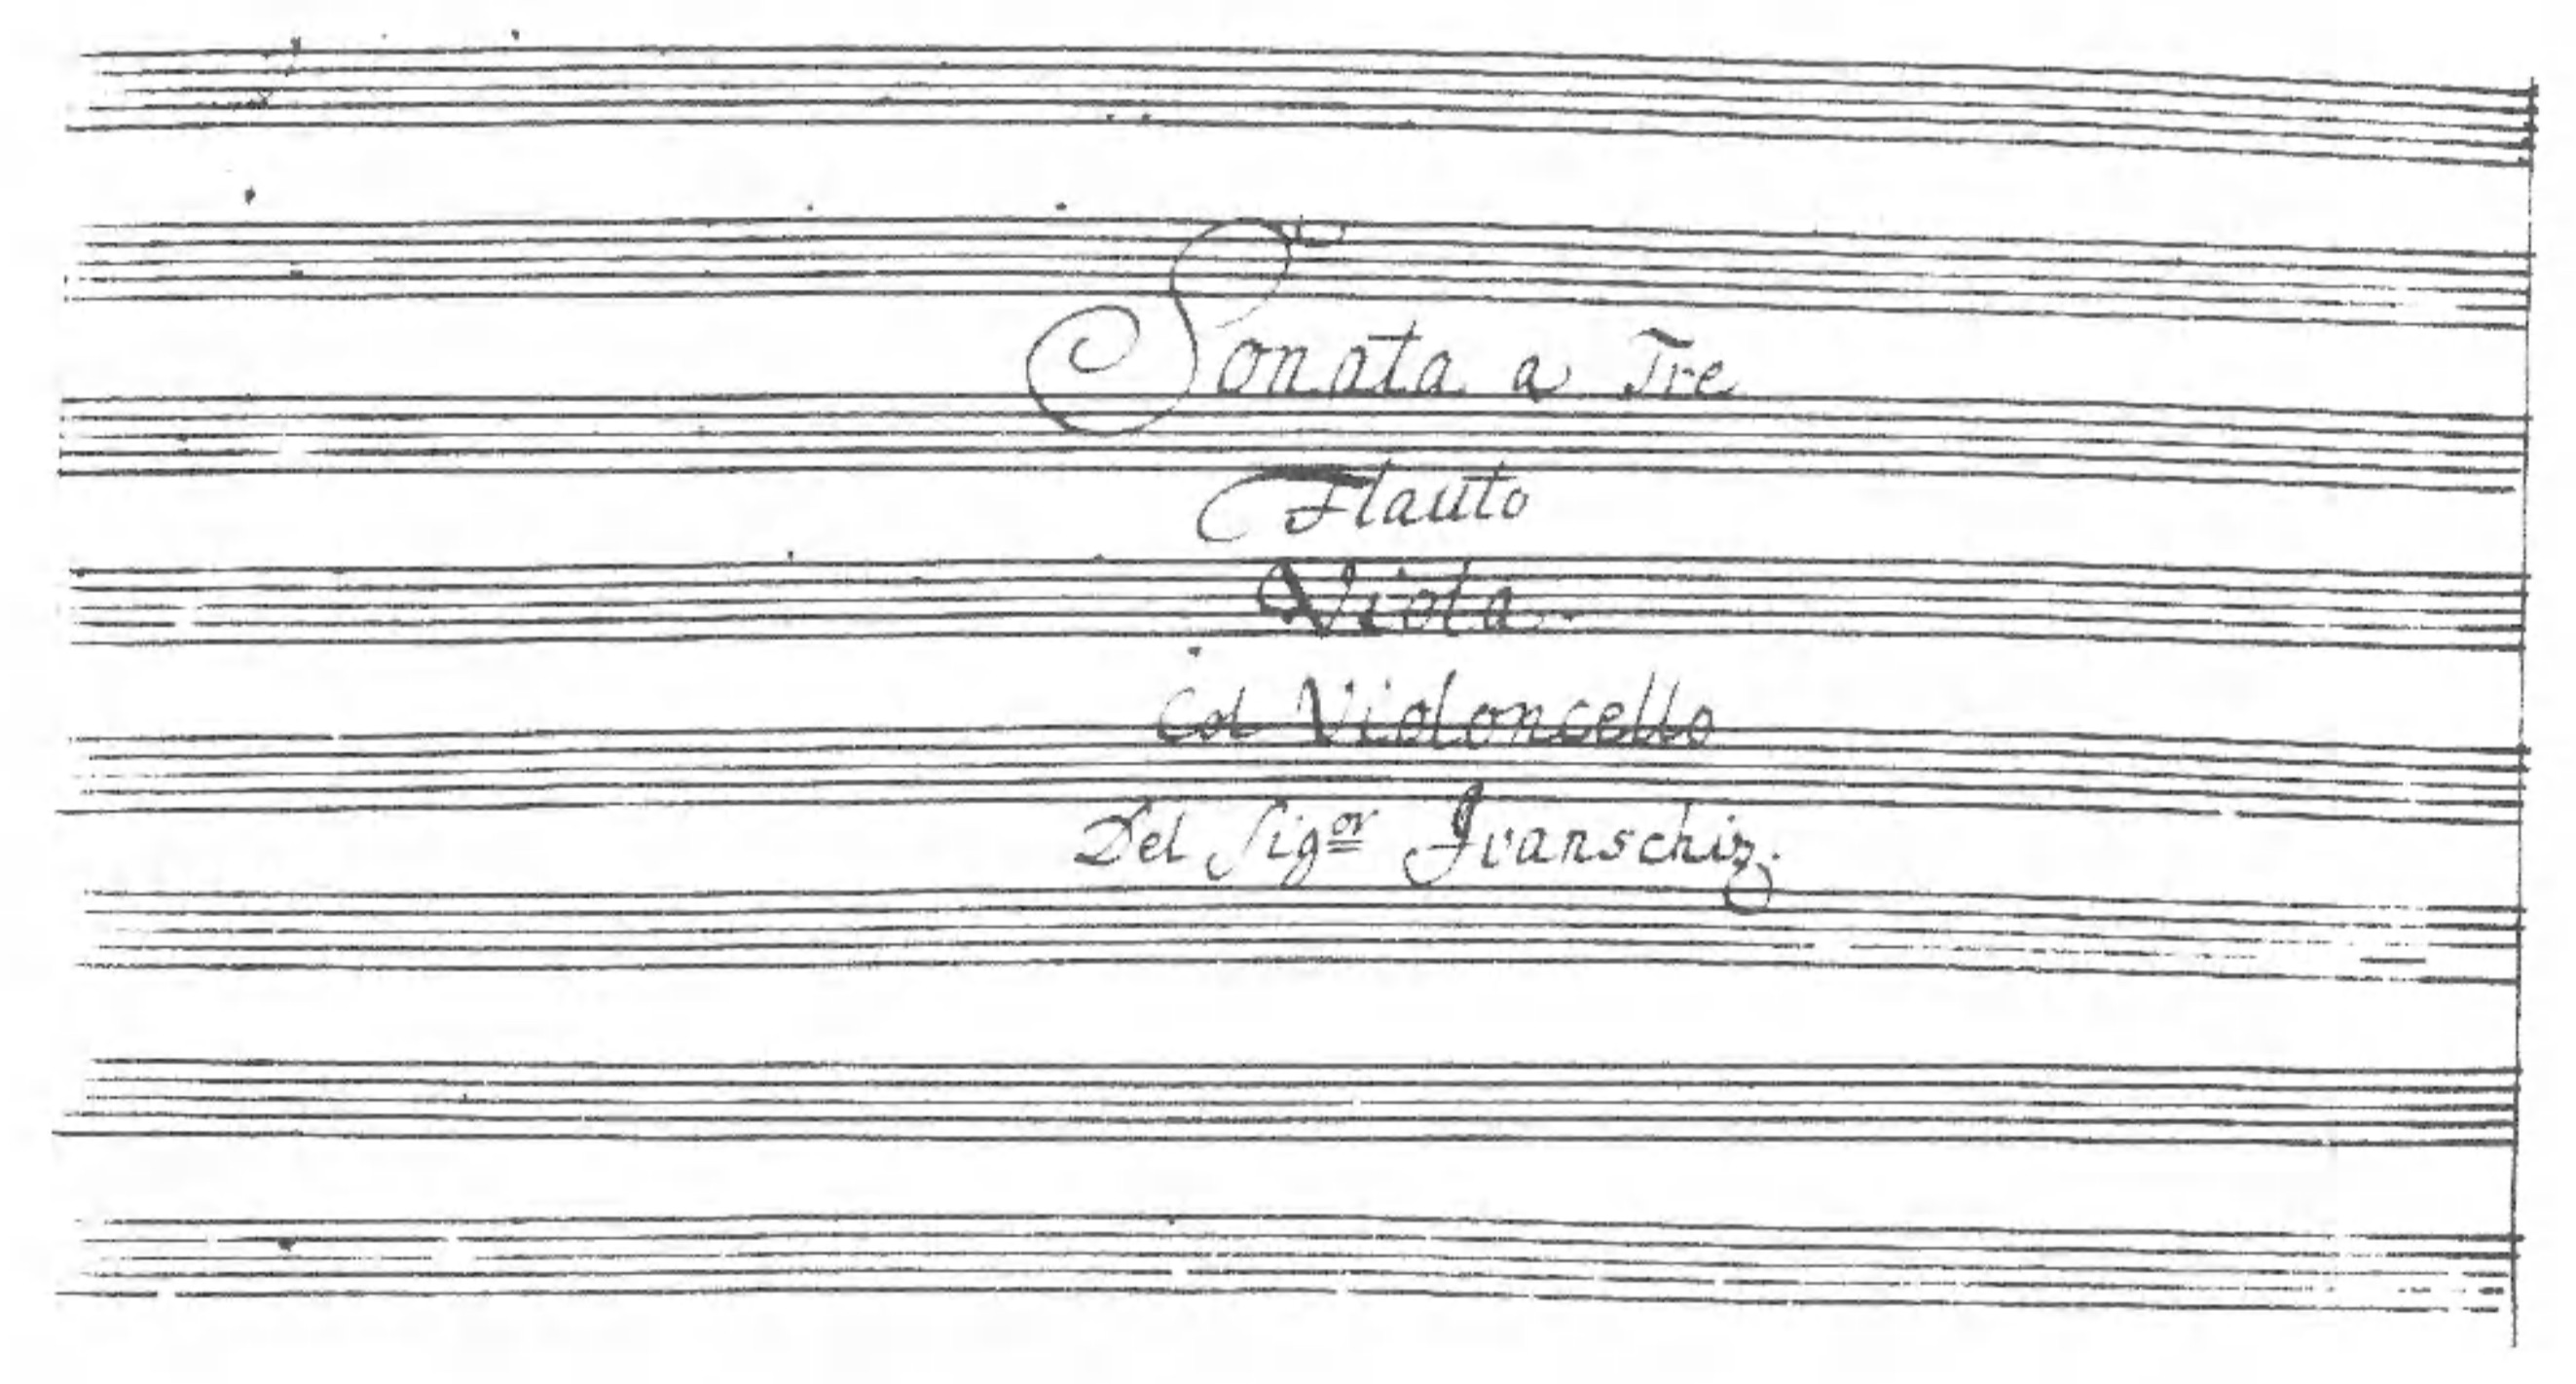 Sonata a Tre
Flauto
Viola.
Col Violoncello
Del Sigor Ivanschiz.